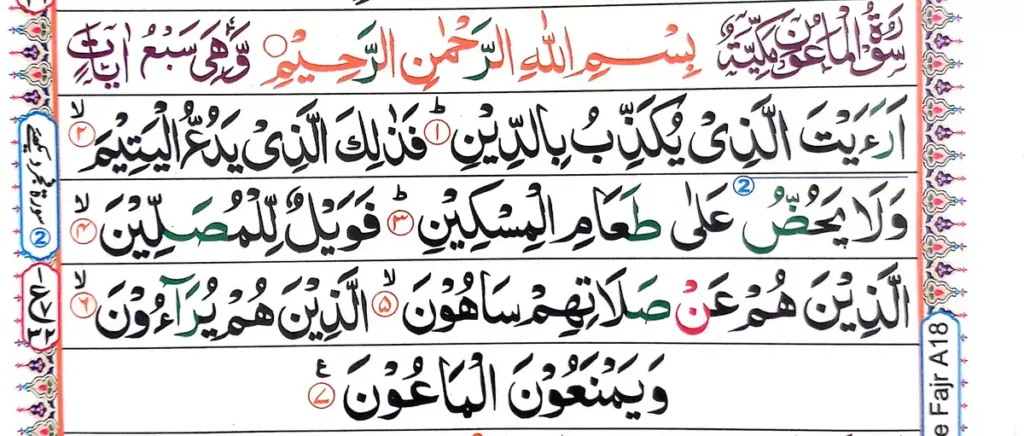 سورة الماعون مكية بِسْمِ اللهِ الرَّحْمٰنِ الرَّحِيْمِ ○ وَّهِىَ سَبْعُ اٰيَاتٍ
اَرَءَيْتَ الَّذِىْ يُكَذِّبُ بِالدِّيْنِ ؕ ۱ فَذٰلِكَ الَّذِىْ يَدُعُّ الْيَتِيْمَ ۙ ۲
وَلَا يَحُضُّ عَلٰى طَعَامِ الْمِسْكِيْنِ ؕ ۳ فَوَيْلٌ لِّلْمُصَلِّيْنَ ۙ ۴
الَّذِيْنَ هُمْ عَنْ صَلَاتِهِمْ سَاهُوْنَ ۙ ۵ الَّذِيْنَ هُمْ يُرَآءُوْنَ ۙ ۶
وَيَمْنَعُوْنَ الْمَاعُوْنَ ۷ ع
2
2
e Fajr A18